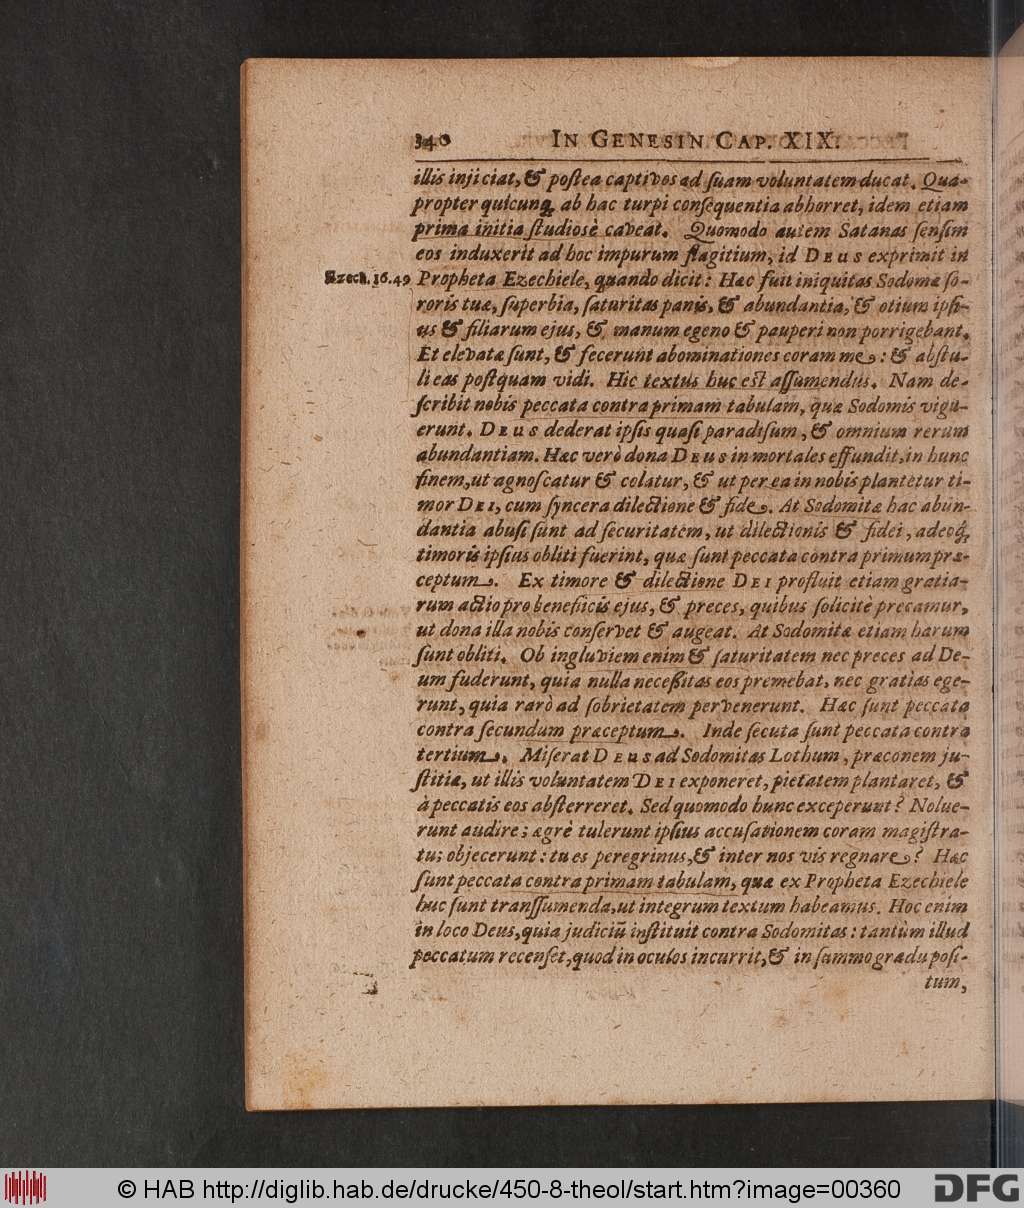 340 IN GENESIN CAP. XIX.
illis injiciat, & poſtea captivos ad ſuam voluntatem ducat. Qua-
propter quicunq; ab hac turpi conſequentia abhorret, idem etiam
prima initia ſtudioſè caveat. Quomodo autem Satanas ſenſim
eos induxerit ad hoc impurum flagitium, id DEUS exprimit in
Ezech. 16. 49
Propheta Ezechiele, quando dicit: Hæc fuit iniquitas Sodomæ ſo-
roris tuæ, ſuperbia, ſaturitas panis, & abundantia, & otium ipſi-
us & filiarum ejus, & manum egeno & pauperi non porrigebant.
Et elevatæ ſunt, & fecerunt abominationes coram me: & abſtu-
li eas poſtquam vidi. Hic textus huc eſt aſſumendus. Nam de-
ſcribit nobis peccata contra primam tabulam, quæ Sodomis vigu-
erunt. DEUS dederat ipſis quaſi paradiſum, & omnium rerum
abundantiam. Hæc verò dona DEUS in mortales effundit, in hunc
finem, ut agnoſcatur & colatur, & ut per ea in nobis plantetur ti-
mor DEI, cum ſyncera dilectione & fide. At Sodomitæ hac abun-
dantia abuſi ſunt ad ſecuritatem, ut dilectionis & fidei, adeoq;
timoris ipſius obliti fuerint, quæ ſunt peccata contra primum præ-
ceptum. Ex timore & dilectione DEI profluit etiam gratia-
rum actio pro beneficiis ejus, & preces, quibus ſolicitè precamur,
ut dona illa nobis conſervet & augeat. At Sodomitæ etiam harum
ſunt obliti. Ob ingluviem enim & ſaturitatem nec preces ad De-
um fuderunt, quia nulla neceßitas eos premebat, nec gratias ege-
runt, quia rarò ad ſobrietatem pervenerunt. Hæc ſunt peccata
contra ſecundum præceptum. Inde ſecuta ſunt peccata contra
tertium. Miſerat DEUS ad Sodomitas Lothum, præconem ju-
ſtitiæ, ut illis voluntatem DEI exponeret, pietatem plantaret, &
à peccatis eos abſterreret. Sed quomodo hunc exceperunt? Nolue-
runt audire; ægrè tulerunt ipſius accuſationem coram magiſtra-
tu; objecerunt: tu es peregrinus, & inter nos vis regnare? Hæc
ſunt peccata contra primam tabulam, quæ ex Propheta Ezechiele
huc ſunt tranſſumenda, ut integrum textum habeamus. Hoc enim
in loco Deus, quia judiciũ inſtituit contra Sodomitas: tantùm illud
peccatum recenſet, quod in oculos incurrit, & in ſummo gradu poſi-
tum,
© HAB http://diglib.hab.de/drucke/450-8-theol/start.htm?image=00360
DFG